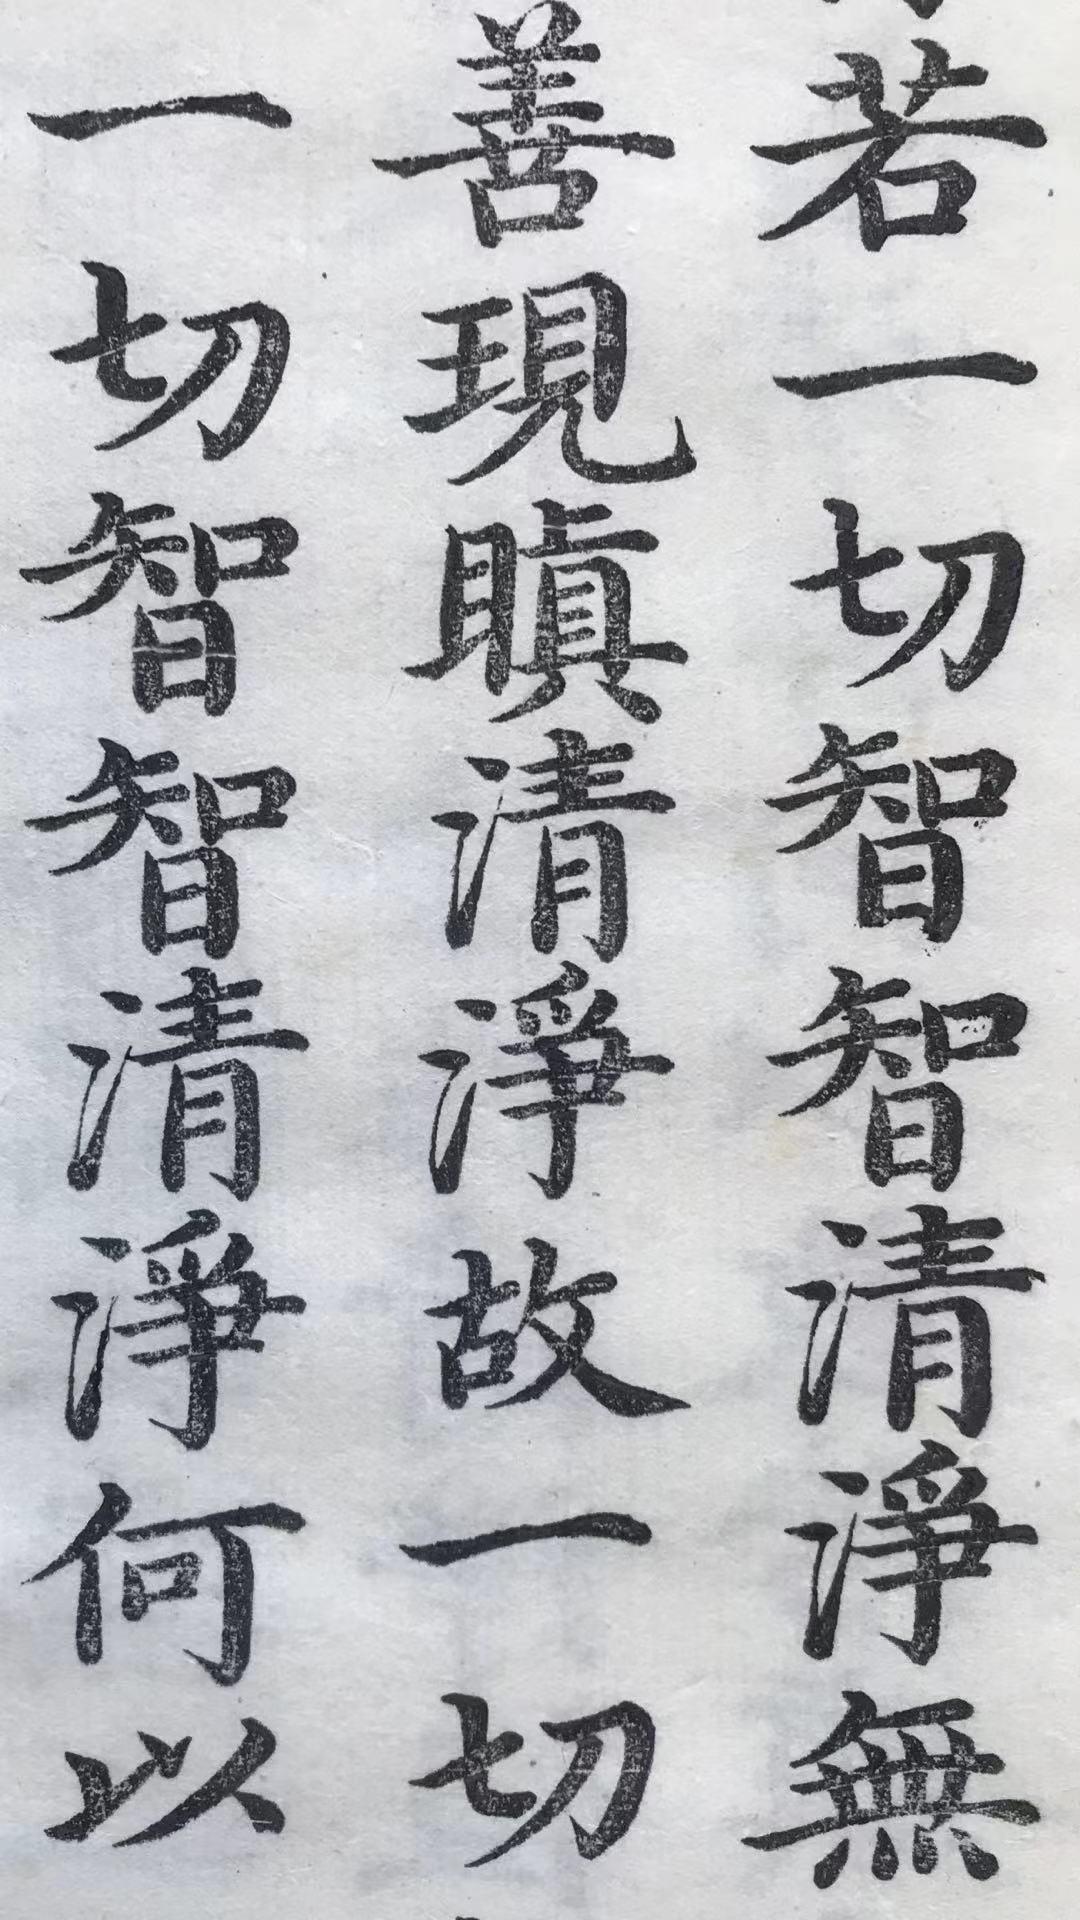 若一切智智清淨無
善現瞋清淨故一切
一切智智清淨何以